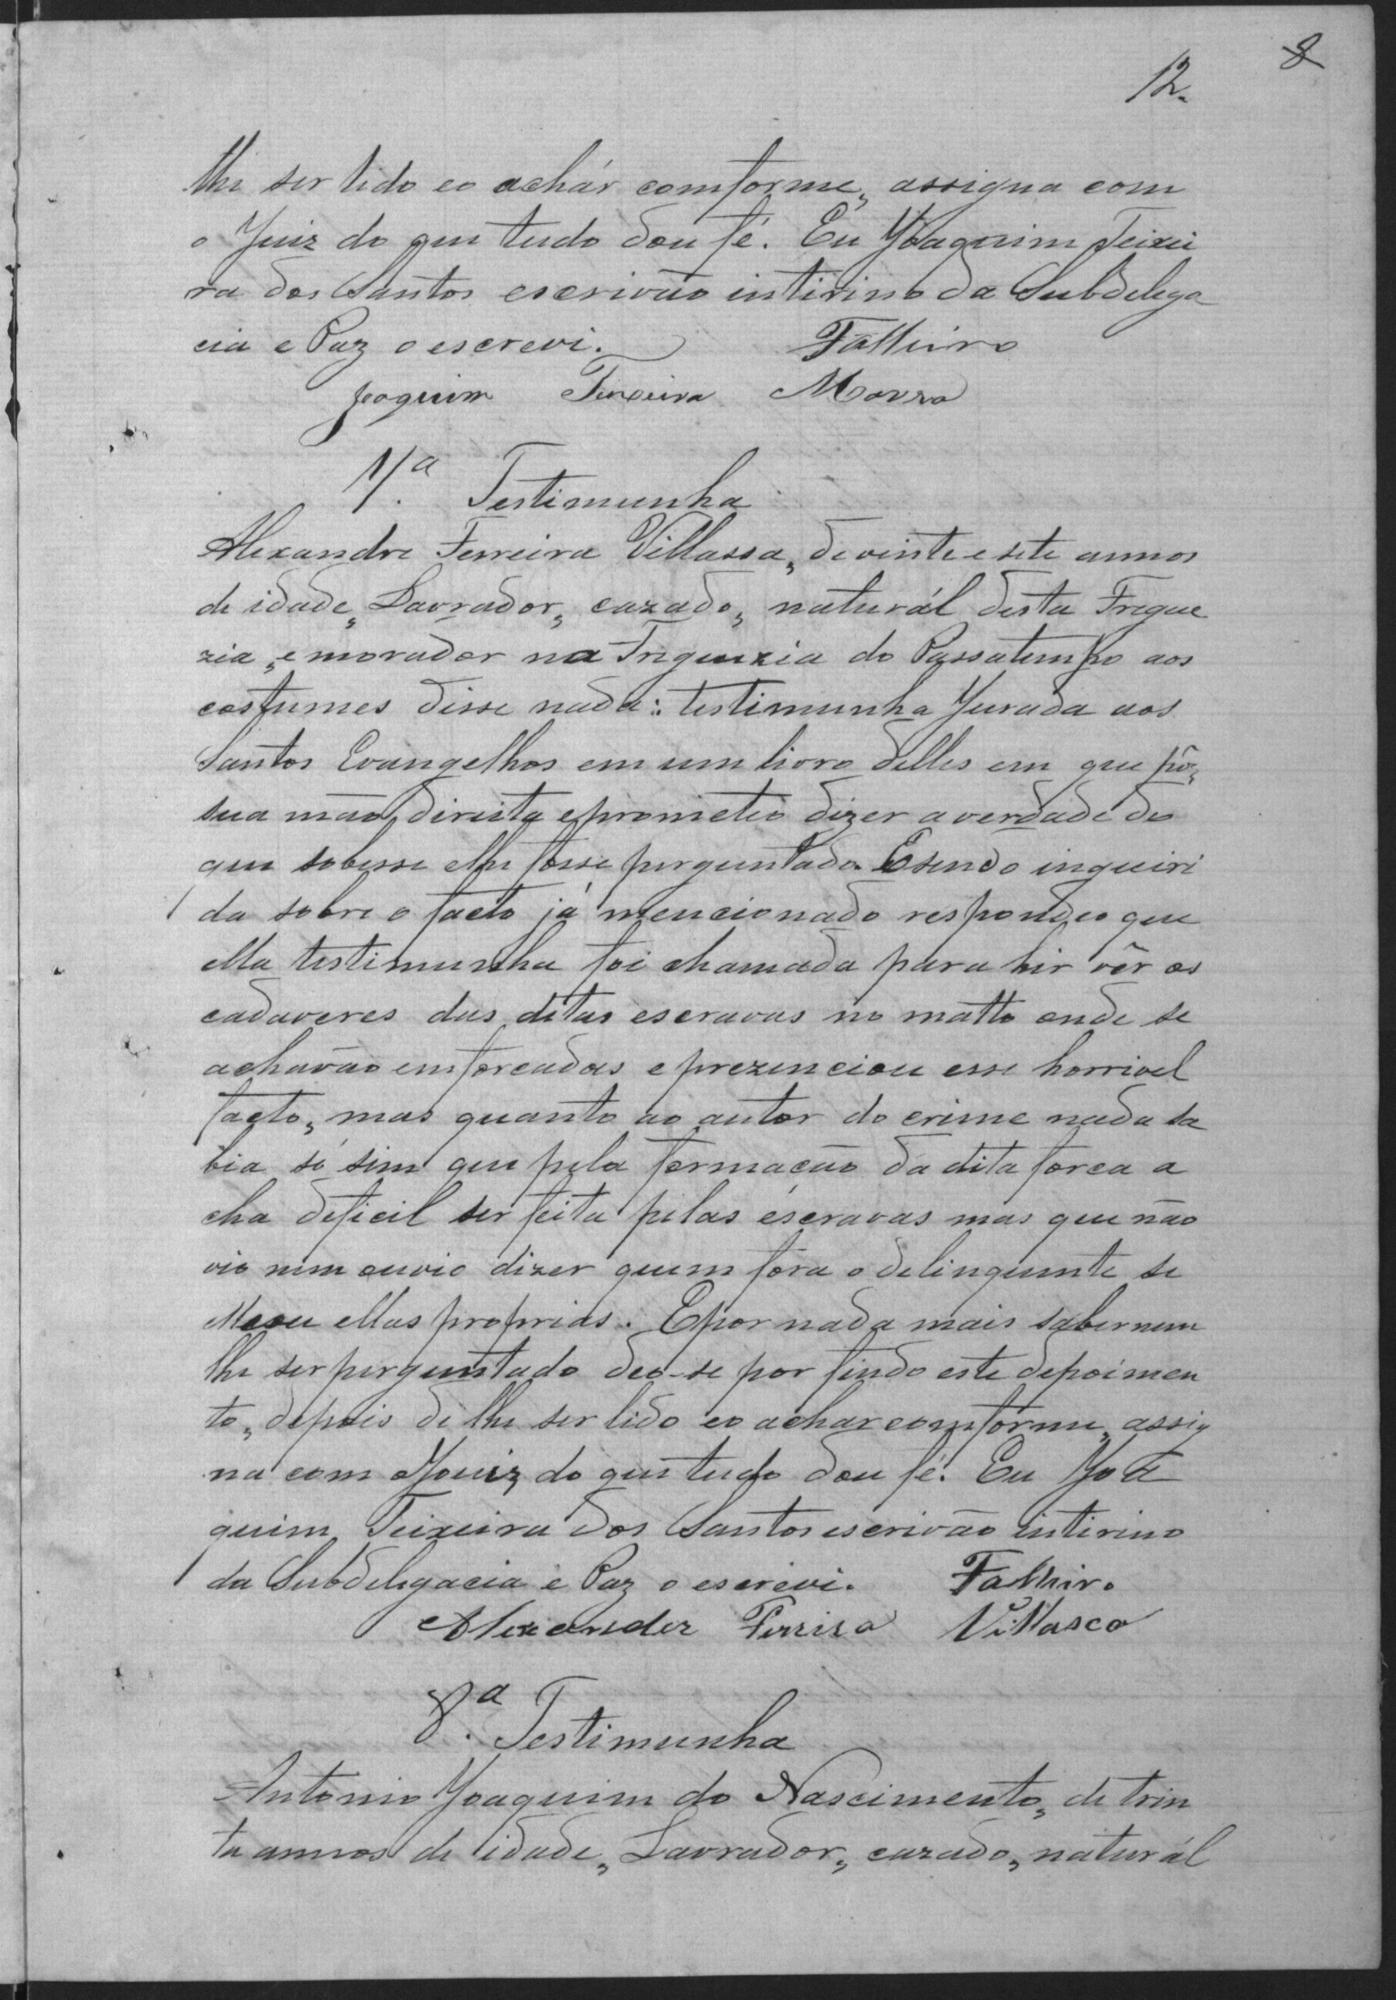 12. 8
lhe ser lido eo achár comforme, assigna com
o Juiz do que tudo dou fé. Eu Joaquim Teixei
ra dos Santos escrivão intirino da Subdelega
cia e Paz o escrevi. Falleiro
Joaquim Teixeira Mourao
7.ª Testimunha
Alexandre Ferreira Villassa, de vinte e sete annos
de idade, Lavrador, cazado, naturál desta Fregue
zia, e morador na Freguezia do Passatempo aos
costumes disse nada: testimunha Jurada aos
Santos Evangelhos em um livro delles em que pôs
sua mão direita e prometeo dizer a verdade do
que sobesse e lhe fosse perguntado. E sendo inquiri
da sobre o facto já mencionado respondeo que
ella testimunha foi chamada para hir vêr os
cadaveres das ditas escravas no matto onde se
achavão emforcadas e prezenciou esse horrivel
facto, mas quanto ao autor do crime nada sa
bia só sim que pela formação da dita forca a
cha deficil ser feita pelas escravas mas que não
vio nem ouvio dizer quem fora o delinquente se
ou ellas proprias. E por nada mais saber nem
lhe ser perguntado deo-se por findo este depoimen
to, depois de lhe ser lido eo achar comforme, assig
na com o Juiz do que tudo dou fé. Eu Joa
quim Teixeira dos Santos escrivão intirino
da Subdelegacia e Paz o escrevi. Falleiro
Alexander Ferrira Villasca
8.ª Testimunha
Antonio Joaquim do Nascimento, de trin
ta annos de idade, Lavrador, cazado, naturál